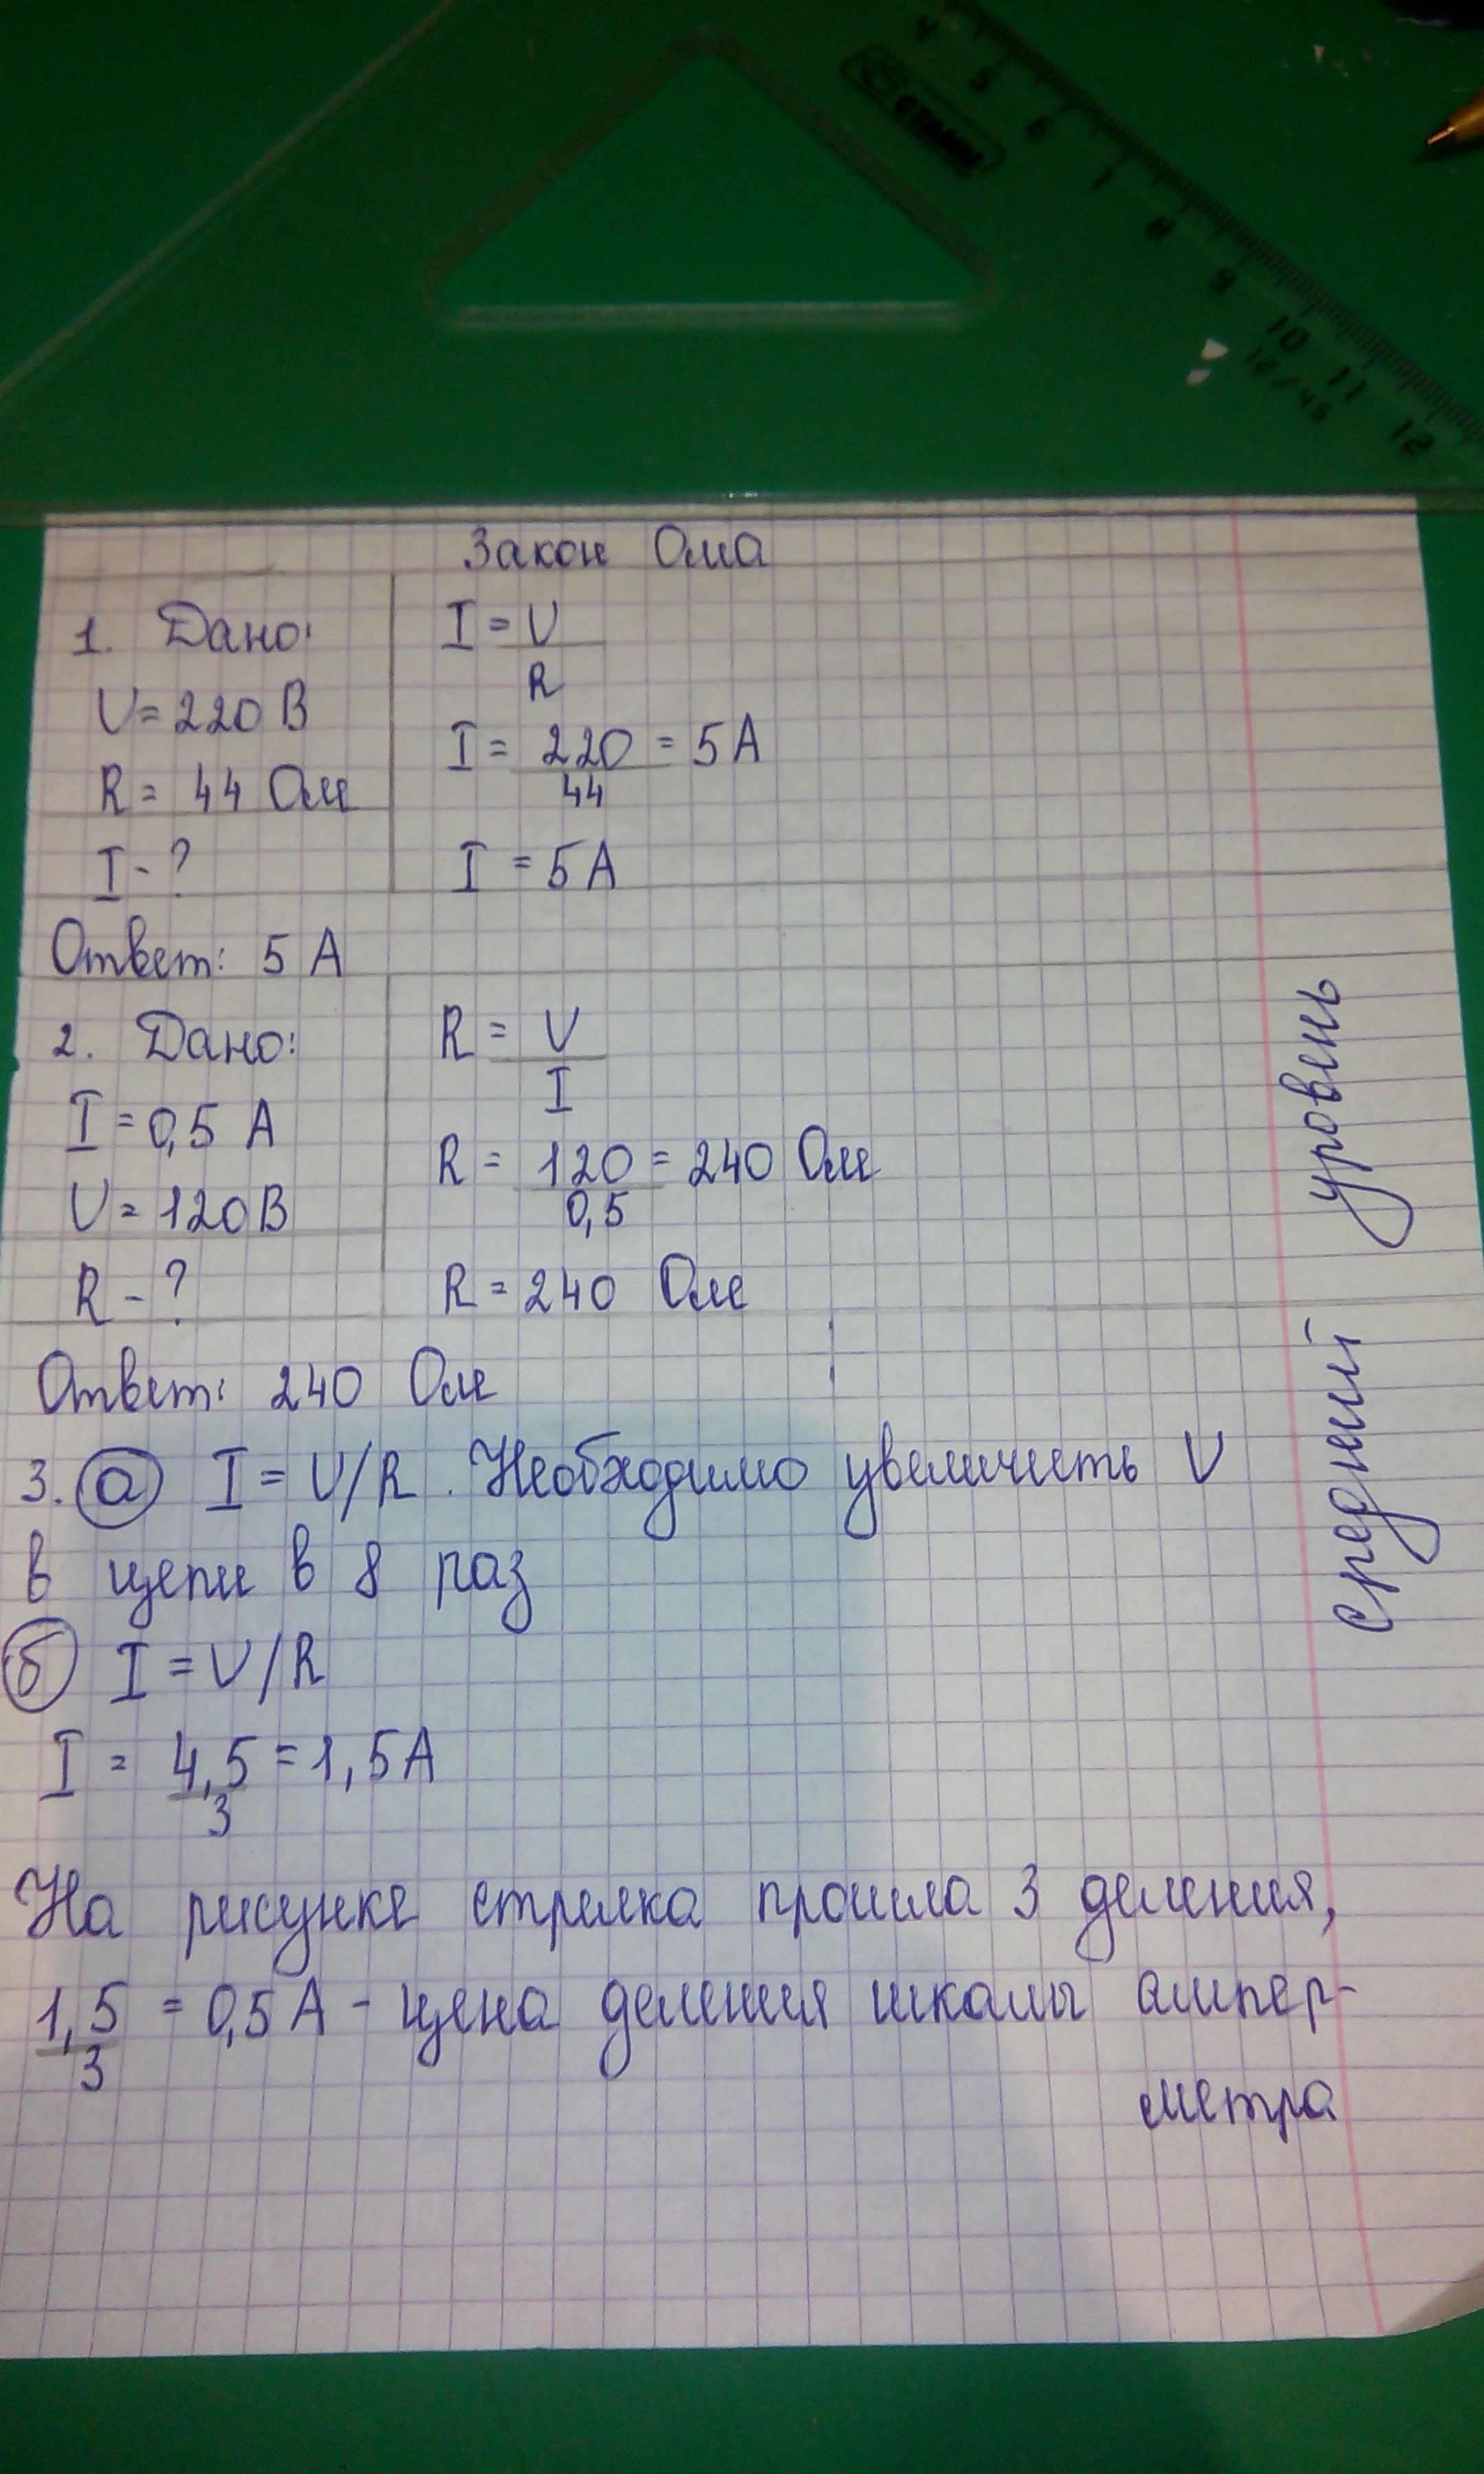 4 5 6 7 8 9 10 11 12
СТАММ
12/45
Закон Ома
1. Дано:
U=220 В
R= 44 Ом
I-?
I = U
R
I = 220 = 5 А
44
I = 5 А
Ответ: 5 А
2. Дано:
I=0,5 А
U=120 В
R-?
R = U
I
R = 120 = 240 Ом
0,5
R = 240 Ом
Ответ: 240 Ом
3. а I = U/R. Необходимо увеличить U
в цепи в 8 раз
б I = U/R
I = 4,5 = 1,5 А
3
На рисунке стрелка прошла 3 деления,
1,5 = 0,5 А - цена деления шкалы ампер-
3
метра
средний уровень